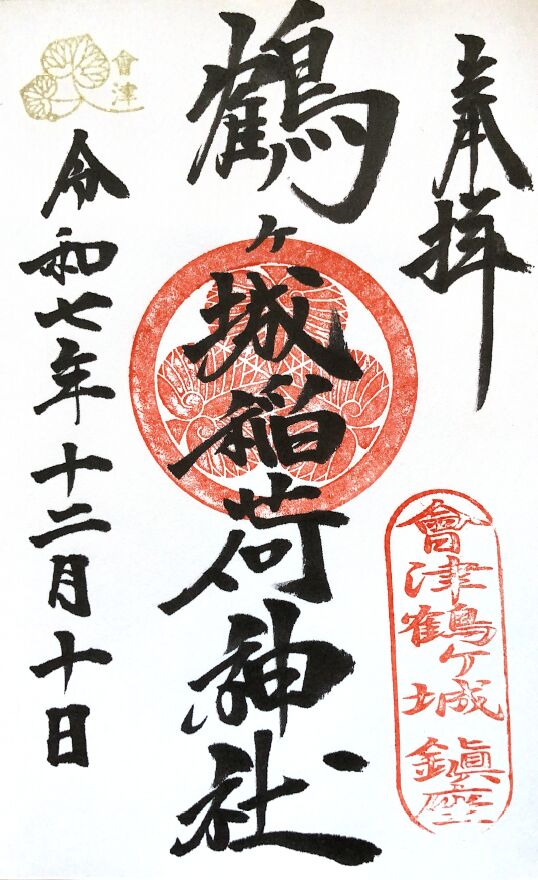 奉拝
會津鶴ヶ城鎮座
鶴ヶ城稲荷神社
會津
令和七年十二月十日